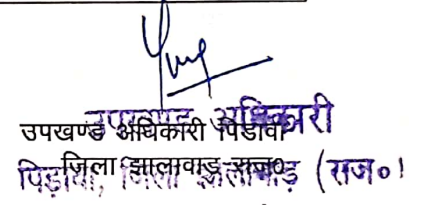 उपखण्ड अधिकारी
उपखण्ड अधिकारी पिडावा
जिला झालावाड़ राज०
पिड़ावा, जिला झालावाड़ (राज०)